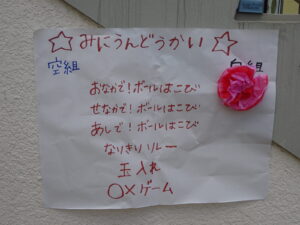 ☆みにうんどうかい☆
空組 白組
おなかで!ボールはこび
せなかで!ボールはこび
あしで!ボールはこび
なりきりリレー
玉入れ
○×ゲーム